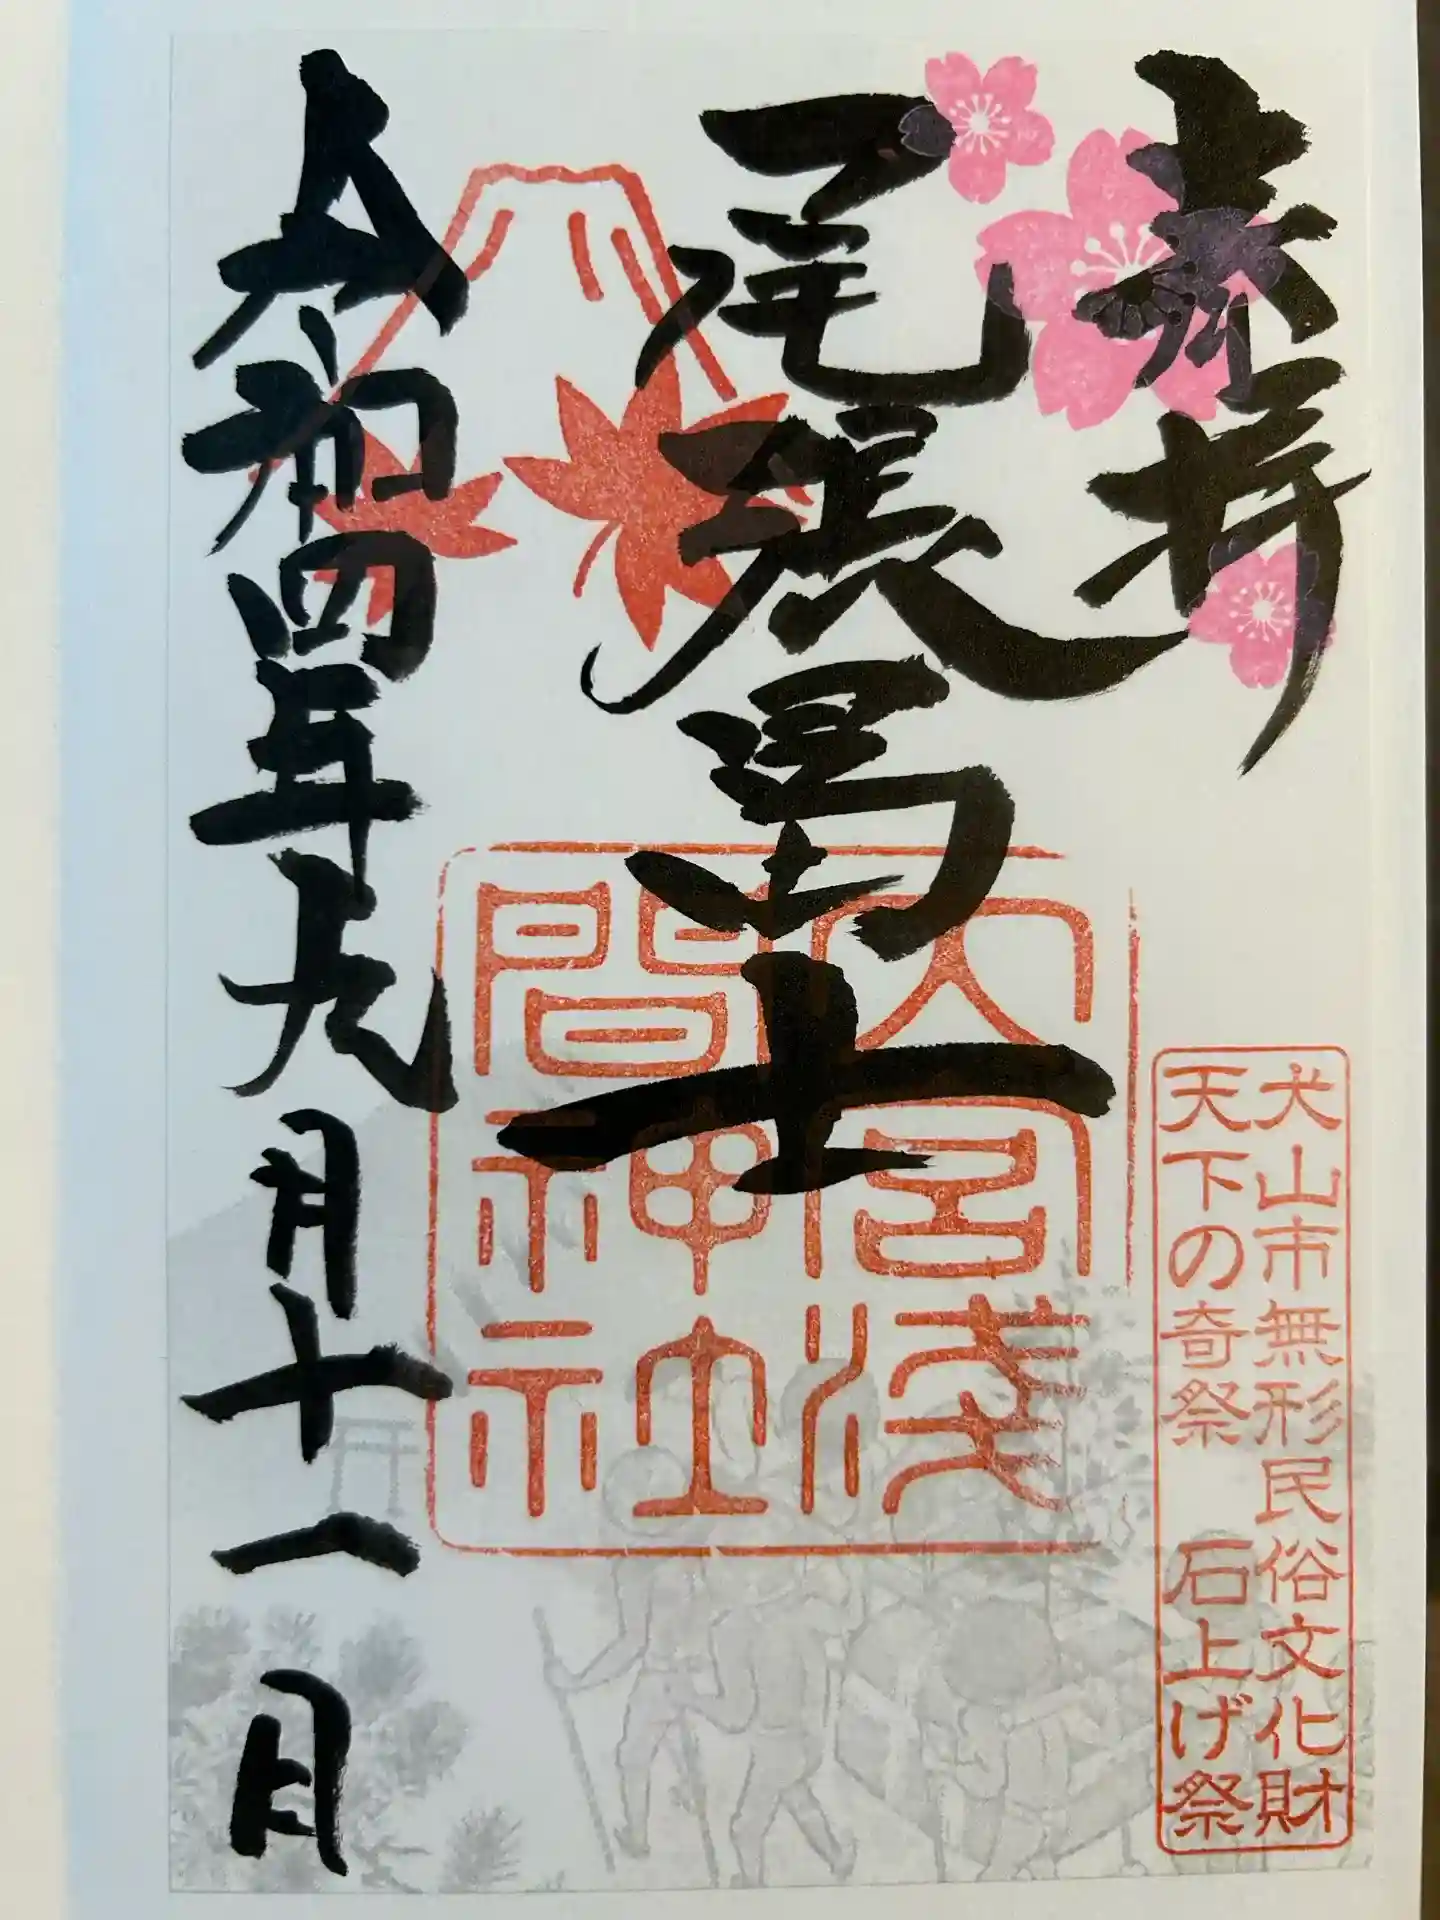 奉拝
尾張冨士
大宮浅
間神社
令和四年九月十一日
犬山市無形民俗文化財
天下の奇祭 石上げ祭